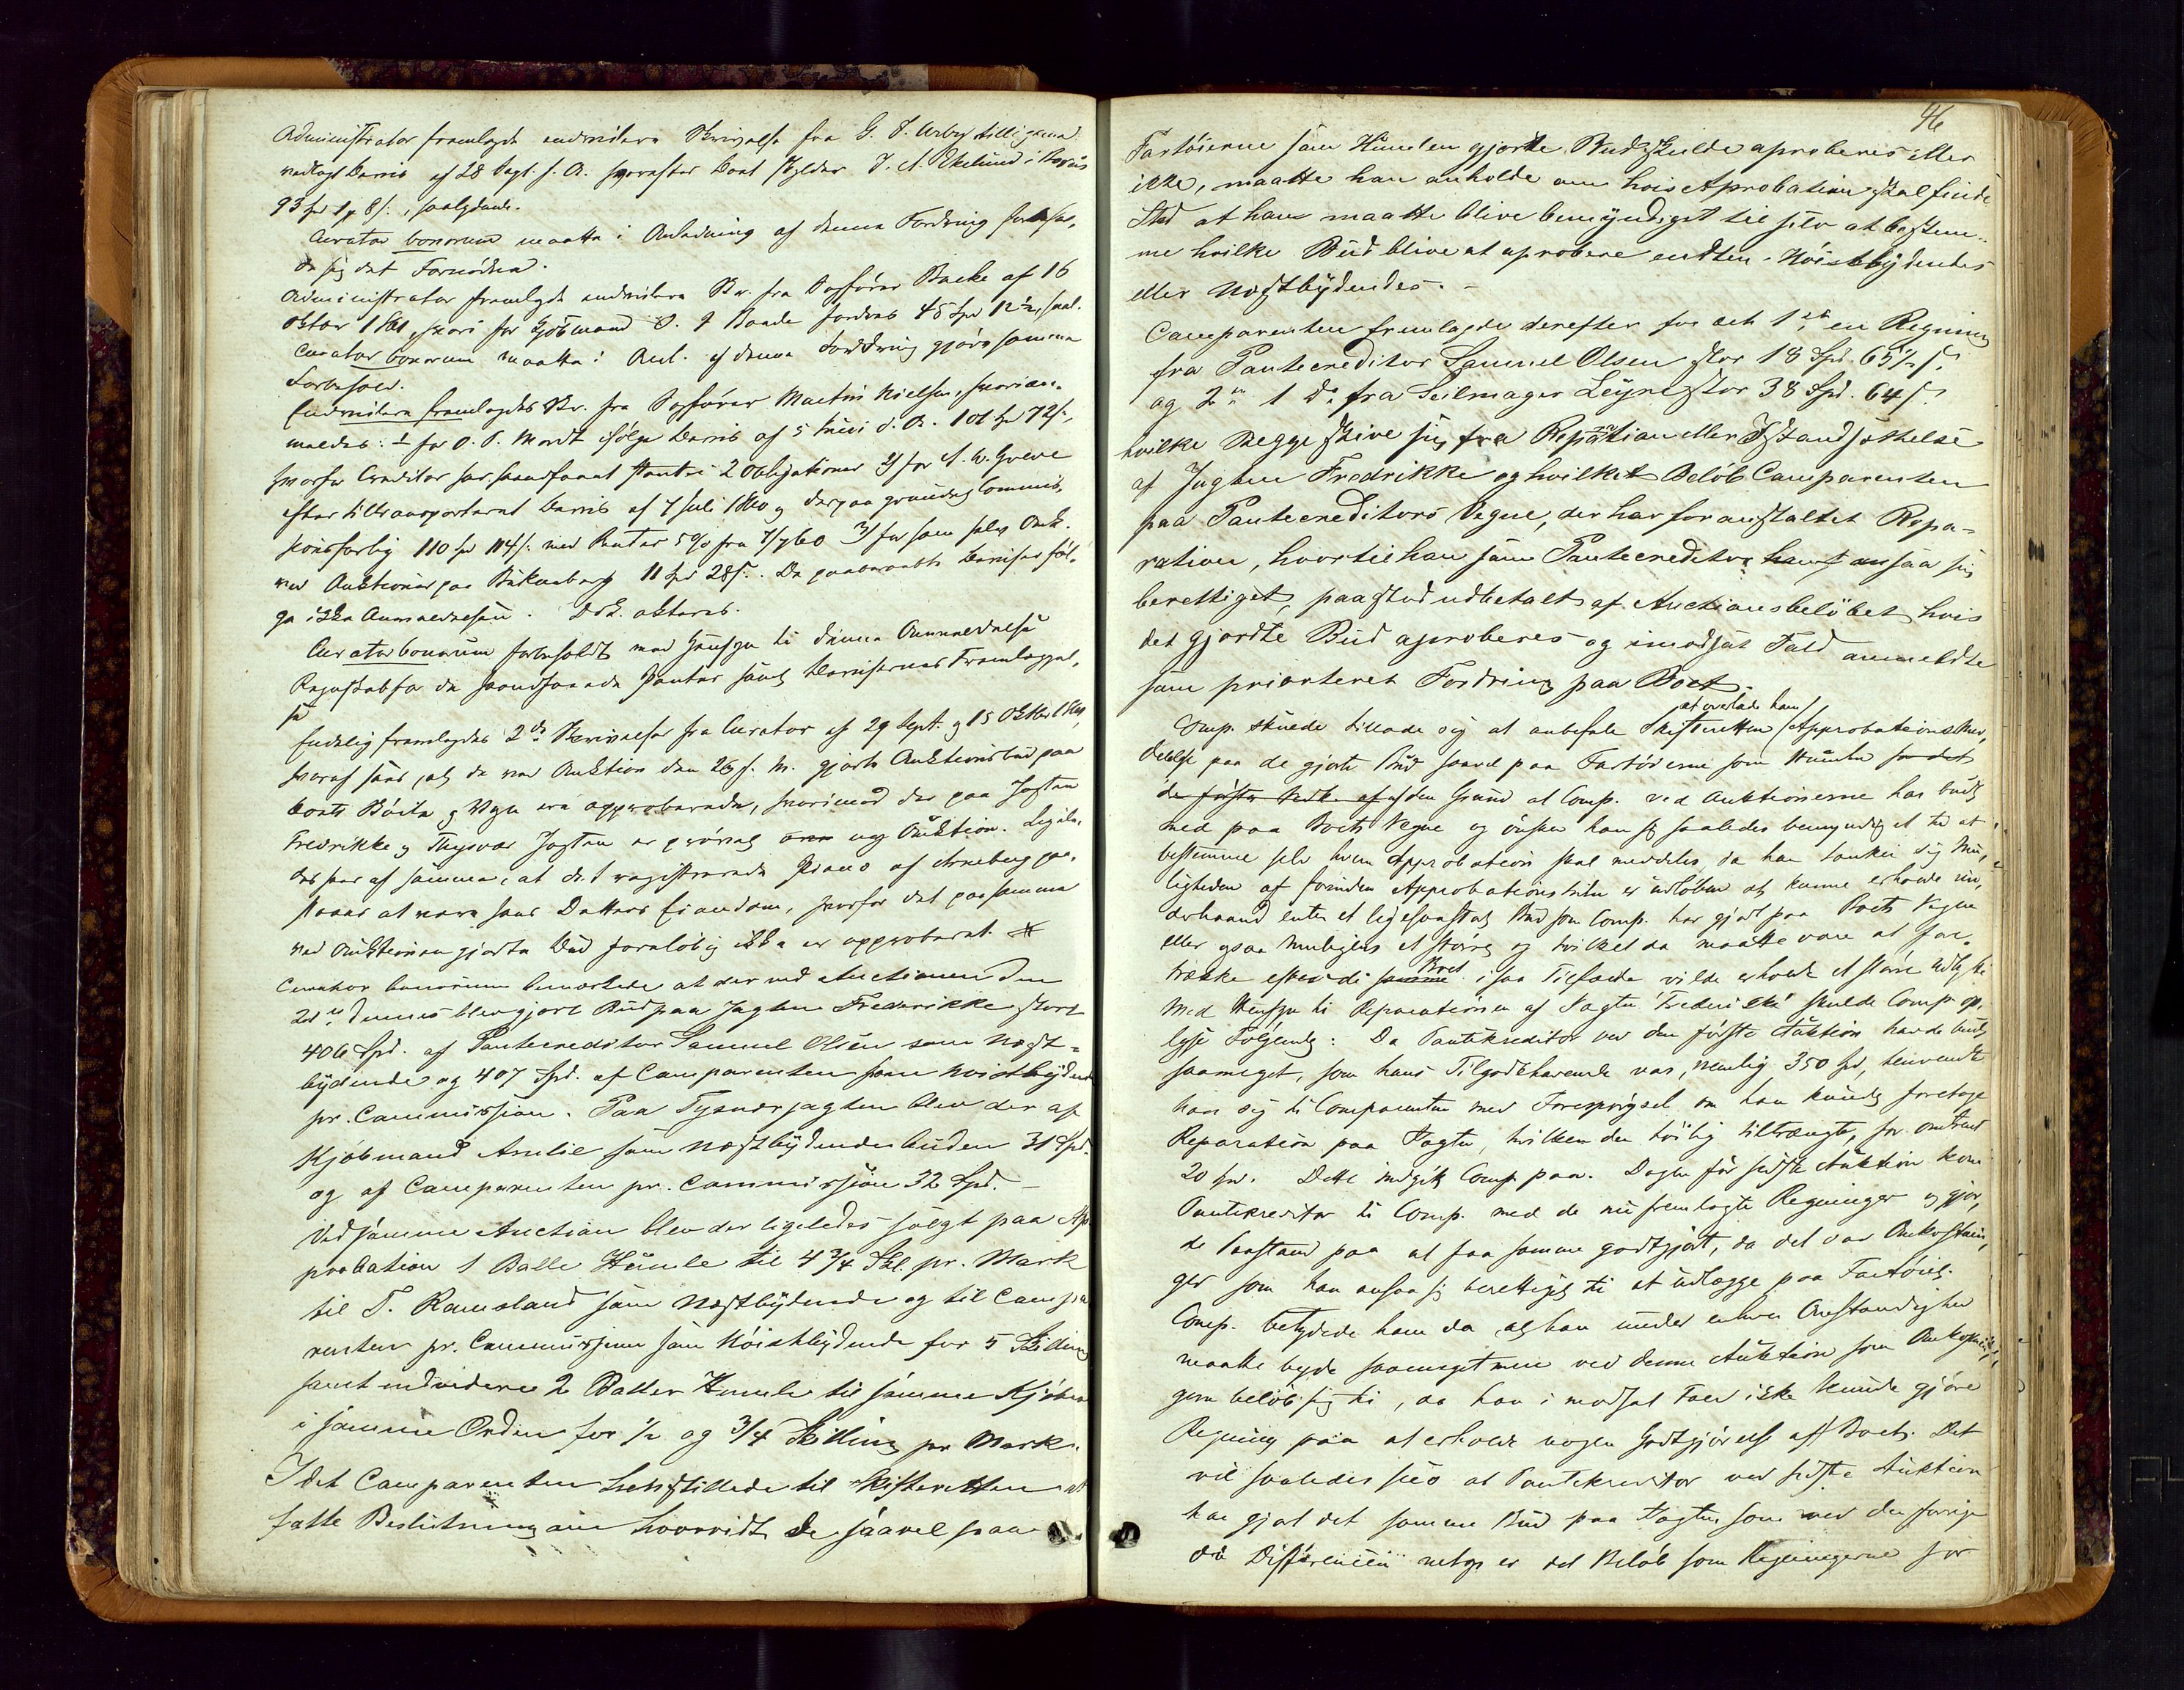 Administrator fremlagde endvidere Skrivelse fra G. T. Urbye tilligemed
vedlagt Bevis af 28 Sept. s. A. hvorefter Boet skylder J. A. Ekelund i
93 Spd 1 8 s., saalydende.
Curator bonorum maatte i Anledning af denne Fordring forbehol-
de sig det Fornødne.
Administrator fremlagde endvidere Br. fra Sagfører Backe af 16
Oktbr 1861, hvori for Kjøbmand O. J. Baade fordres 45 Spd 12½ s, saal.
Curator bonorum maatte i Anl. af denne Fordring gjøre samme
Forbehold.
Endvidere fremlagdes Br. fra Sagfører Martin Nielsen, hvori an-
meldes: 1 for O. S. Mordt ifølge Bevis af 5 Juni d. A. 101 Spd 72 s,
hvorfor Creditor har haandfaaet Pant i 2 Obligationer 2) for A. W. Greve
efter tiltransporteret Bevis af 7 Juli 1860 og derpaa grundet Commis-
sionsforlig 110 Spd 114 s. med Renter 5 % fra 7/7 60 3) for som solgt Auk.
ved Auktioner paa Bukneberg 11 Spd 28 s. De paaberaabte Beviser føl-
ge ikke Anmeldelsen. Dok. akteres.
Curator bonorum forbeholdt med Hensyn til denne Anmeldelse
Regnskab for de haandfaaede Panter samt Bevisernes Fremlæggel-
se
Endelig fremlagdes 2de Skrivelser fra Curator af 29 Sept. og 15 Oktbr 1861,
hvoraf sees, at de ved Auktion den 26 f. M. gjorte Auktionsbud paa
Boets Bøile og Vogn ere approberede, hvorimod der paa Jagten
Fredrikke og Thysvær Jagten er prøvet ny Auktion. Ligele-
des sees af samme, at det registrerede Piano af Arneberg paa-
staaes at være hans Datters Eiendom, hvorfor det paa samme
ved Auktionen gjorte Bud foreløbig ikke er approberet.
Curator bonorum bemærkede at der ved Auctionen den
2den dennes blev gjort Bud paa Jagten Fredrikke stort
406 Spd. af Pantecreditor Samuel Olsen som Næst-
bydende og 407 Spd. af Comparenten som Høistbydende
pr. Commission. Paa Tysverjagten blev der af
Kjøbmand Amlie som Næstbydende buden 31 Spd.
og af Comparenten pr. Commission 32 Spd. –
Ved samme Auction blev der ligeledes solgt paa Ap
probation 1 Balle Humle til 4¾ Skl. pr. Mark
til T. Ramsland som Næstbydende og til Compa
renten pr. Commission som Høistbydende for 5 Skilling
samt endvidere 2 Baller Humle til samme Kjøbere
i samme Orden for ½ og ¾ Skilling pr Mark.
I det Comparenten henstillede til Skifteretten at
fatte Beslutning om hvorvidt de saavel paa
46
Fartøierne som Humlen gjorte Bud skulde aproberes eller
ikke, maatte han anholde om hvis Aprobation skal finde
Sted at han maatte blive bemyndiget til selv at bestem-
me hvilke Bud blive at aprobere endten Høistbydendes
eller Næstbydendes. –
Comparenten fremlagde derefter for det 1ste en Regning
fra Pantecreditor Samuel Olsen stor 18 Spd. 65½ s.
og 2en 1 do fra Seilmager Leyne stor 38 Spd. 64 s.
hvilke Begge skrive sig fra Reparation eller Istandsættelse
af Jagten Fredrikke og hvilket Beløb Comparenten
paa Pantecreditors Vegne, der har foranstaltet Repa-
ration, hvortil han som Pantecreditor ansaa sig
berettiget, paastod udbetalt af Auctionsbeløbet hvis
det gjordte Bud aproberes og i modsat Fald anmeldte
som prioriteret Fordring paa Boet.
Comp. skulde tillade sig at anbefale Skifteretten /at overlade ham/ Approbations Med-
delelse paa de gjorte Bud saavel paa Fartøierne som Humlen for det
de første Vedk. af af den Grund at Comp. ved Auktionerne har budt
med paa Boets Vegne og ønsker han sig saaledes bemyndiget til at
bestemme selv hvem Approbation skal meddeles, da han tænker sig Mu-
ligheden af forinden Approbationstiden er udløben at kunne erholde un-
derhaanden enten et ligesaastort Bud som Comp. har gjort paa Boets Vegne
eller ogsaa muligens et større og hvilket da maatte være at fore-
trække efterdi Boet i saa Tilfælde vilde erholde et større Udlyt.
Med Hensyn til Reparationen af Jagten Fredrikke skulde Comp. op-
lyse Følgende: Da Pantekreditor ved den første Auktion havde budt
saameget, som hans Tilgodehavende var, nemlig 350 Spd, henvendte
han sig til Comparenten med Forespørgsel om han kunde foretage
Reparation paa Jagten, hvilken den høilig tiltrængte, for omtrent
20 Spd. Dette indgik Comp. paa. Dagen før sidste Auktion kom
Pantekreditor til Comp. med de nu fremlagte Regninger og gjor-
de Paastand paa at faa samme godtgjort, da det var Omkostnin-
ger som han ansaa sig berettiget til at udlægge paa Fartøiet.
Comp. betydede ham da, at han under enhver Omstændighed
maatte byde saameget mere ved denne Auktion som Omkostnin-
gerne beløb sig til, da han i modsat Fald ikke kunde gjøre
Regning paa at erholde nogen Godtgjørelse af Boet. Det
vil saaledes sees at Pantekreditor ved sidste Auktion
har gjort det samme Bud paa Jagten som ved den forrige
da Differencen netop er det Beløb som Regningerne for